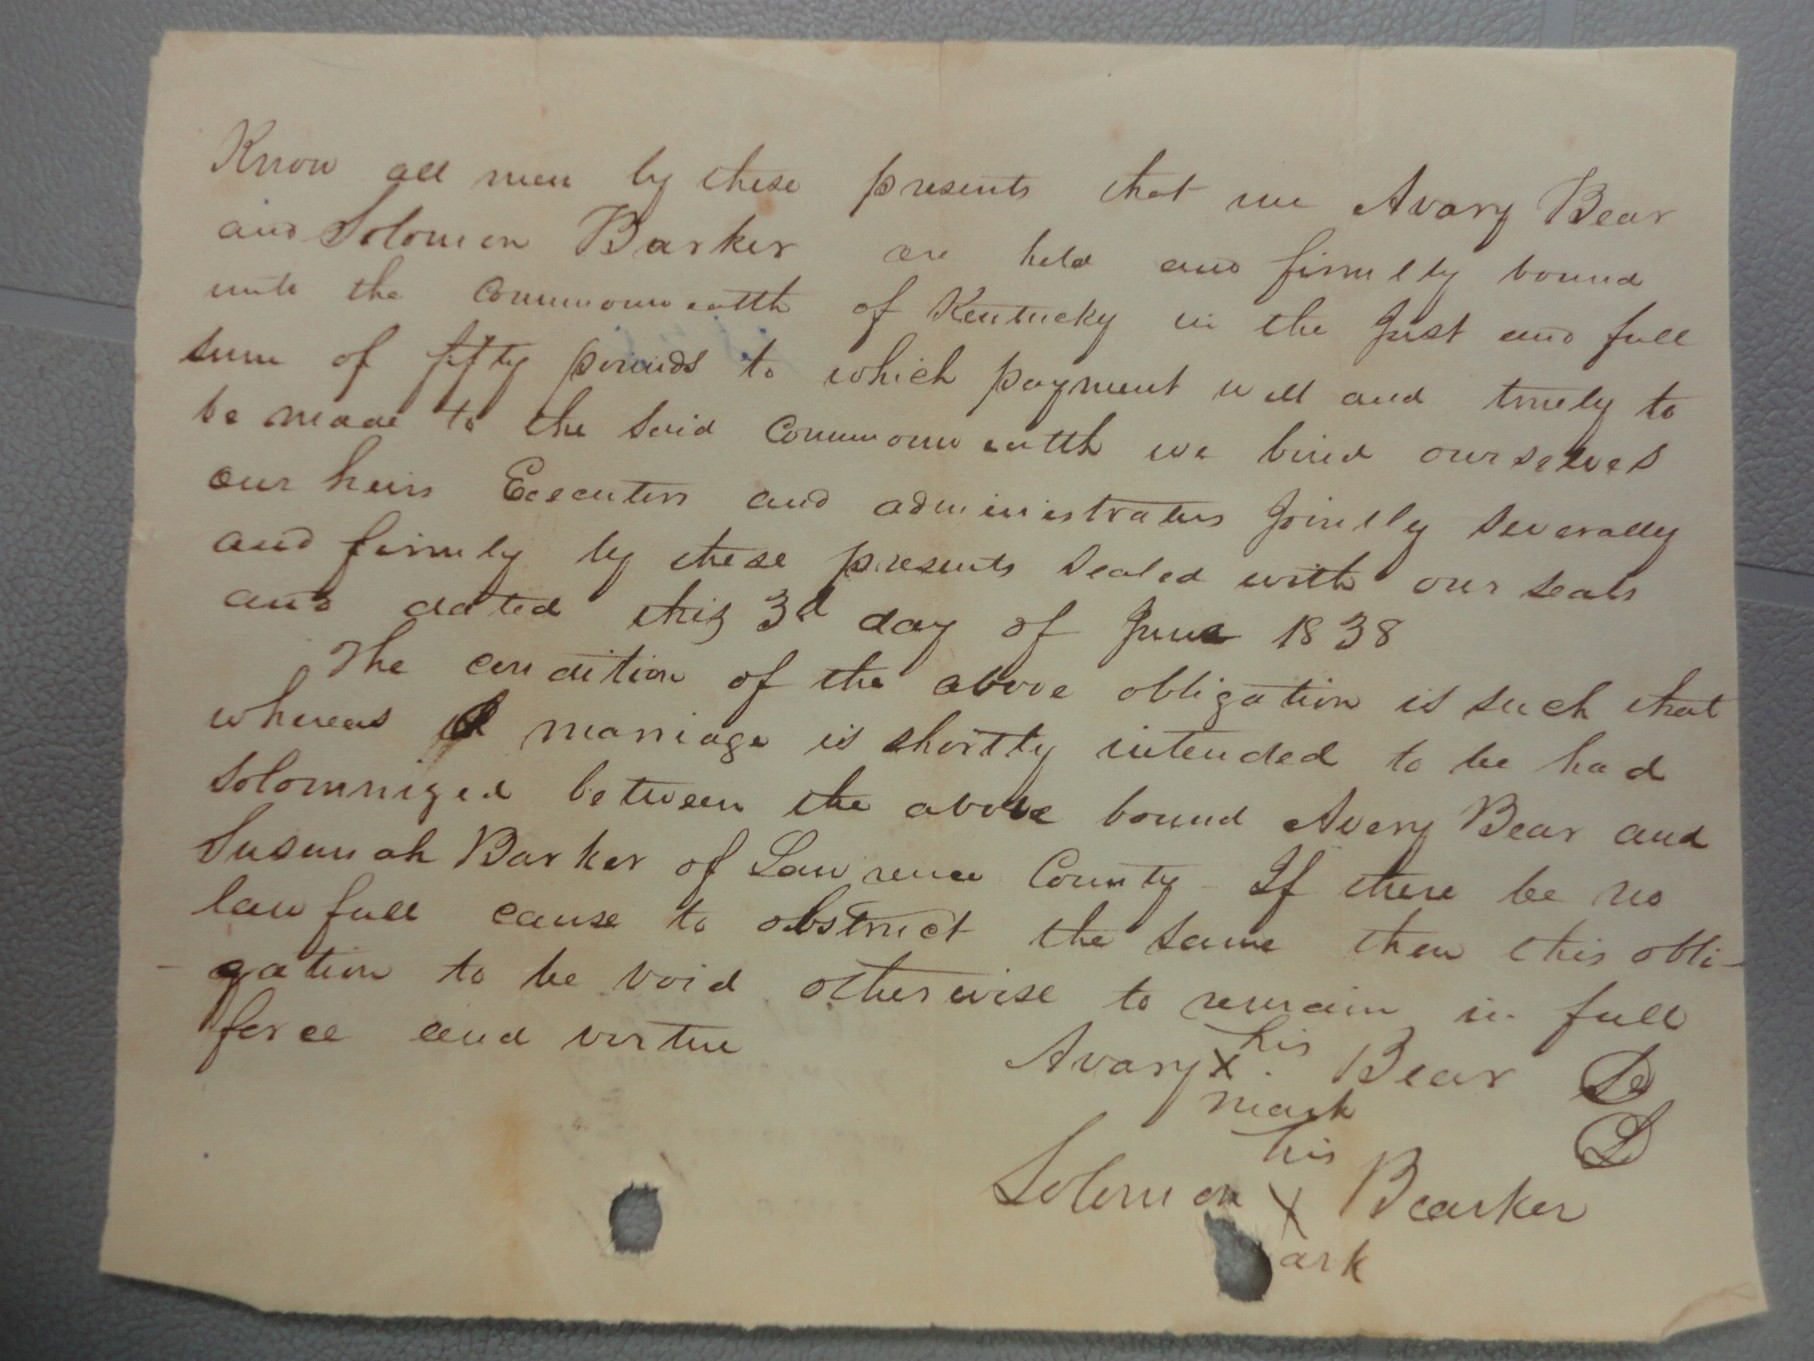 Know all men by these presents that we Avary Bear
and Solomon Barker are held and firmlly bound
unto the Commonwealth of Kentucky in the Just and full
sum of fifty pounds to which payment well and truely to
be made to the said Commonwealth we bind ourselves
our heirs Executors and administrators Jointly severally
and firmly by these presents sealed with our seals
and dated this 3d day of June 1838
The condition of the above obligation is such that
whereas a marriage is shortly intended to be had
solomnized between the above bound Avery Bear and
Susunah Barker of Lawrence County If there be no
lawfull cause to obstruct the same then this obli-
- gation to be void otherwise to remain in full
force and virtue
his
Avary X Bear
mark
his
Solomon X Bearker
ark